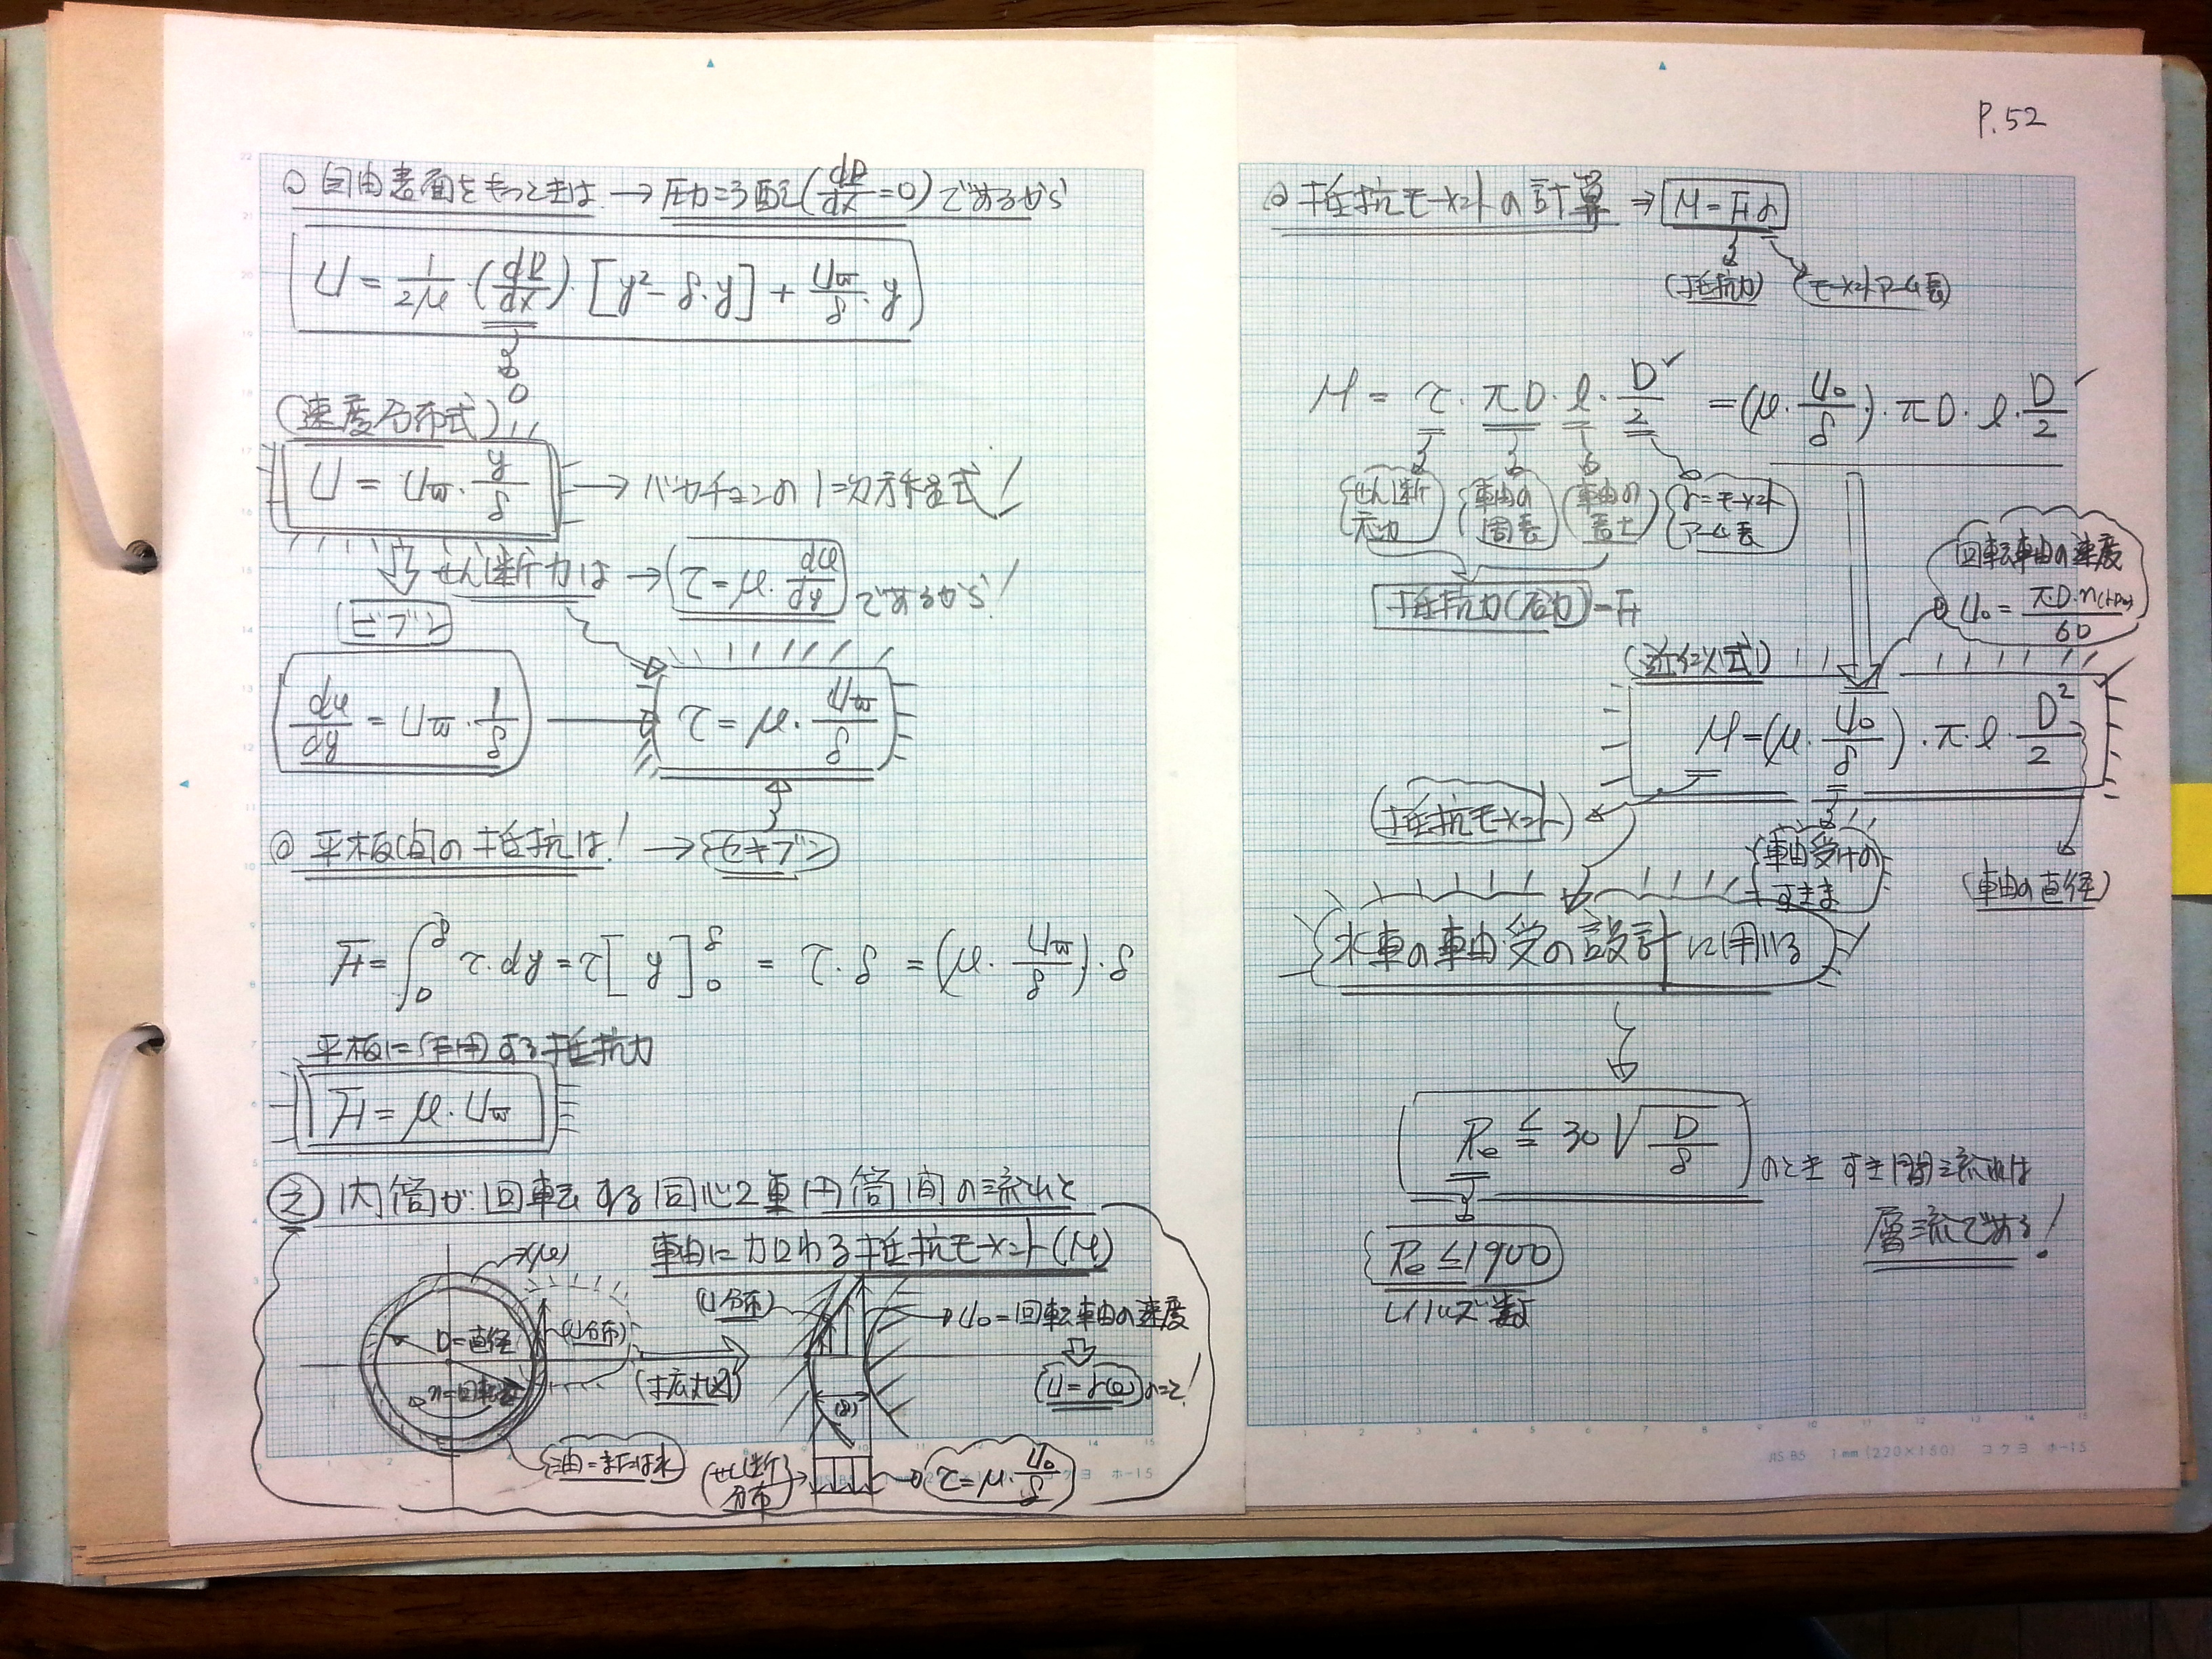 ○ 自由表面をもつときは → 圧力こう配(dp/dx=0)であるから
U = 1/2μ・(dp/dx)・[y²-δ・y] + Uw/δ・y
0
(速度分布式)
U = Uw・y/δ → バカチョンの1次方程式!
せん断力は → τ=μ・du/dy であるから!
ビブン
du/dy = Uw・1/δ
τ = μ・Uw/δ
◎ 平板(白)の抵抗は! → セキブン
F = ∫₀^δ τ・dy = τ[y]₀^δ = τ・δ = (μ・Uw/δ)・δ
平板に作用する抵抗力
F = μ・Uw
② 内筒が回転する同心2重円筒間の流れと
軸に加わる抵抗モーメント(M)
(μ)
D=直径
n=回転速
(U分布)
(拡大図)
油=または水
(U分布)
U₀=回転軸の速度
(δ)
(せん断分布)
τ=μ・U₀/δ
P.52
◎ 抵抗モーメントの計算 ⇒ M=F・r
(抵抗力) (モーメントアーム長)
M = τ・πD・l・D/2 = (μ・U₀/δ)・πD・l・D/2
せん断応力
軸の周長
軸の長さ
r=モーメントアーム長
抵抗力(応力)=F
回転軸の速度
U₀ = π・D・n(rpm)/60
(近似式)
M=(μ・U₀/δ)・π・l・D²/2
(抵抗モーメント)
軸受けのすきま
(軸の直径)
水車の軸受の設計に用いる
Re ≦ 30√D/δ のとき すき間流れは
層流である!
Re ≦1900
レイノルズ数
JIS B5 1mm (220×150) コクヨ ホ-15